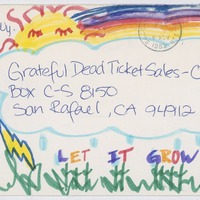 Grateful Dead Ticket Sales - C
Box C-S 8150
San Rafael, CA 94912
LET IT GROW